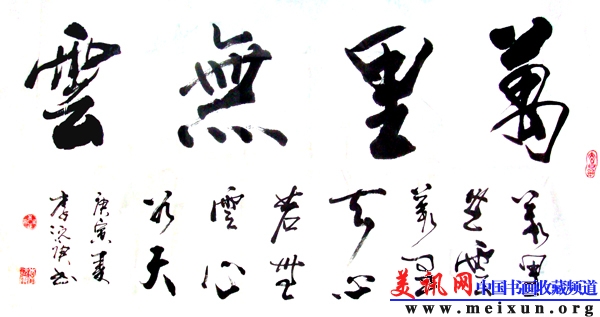 萬里無雲
萬里
無雲
萬里
天心
若無
雲心
天
庚寅夏
李
書
美讯网 中国书画收藏频道
www.meixun.org